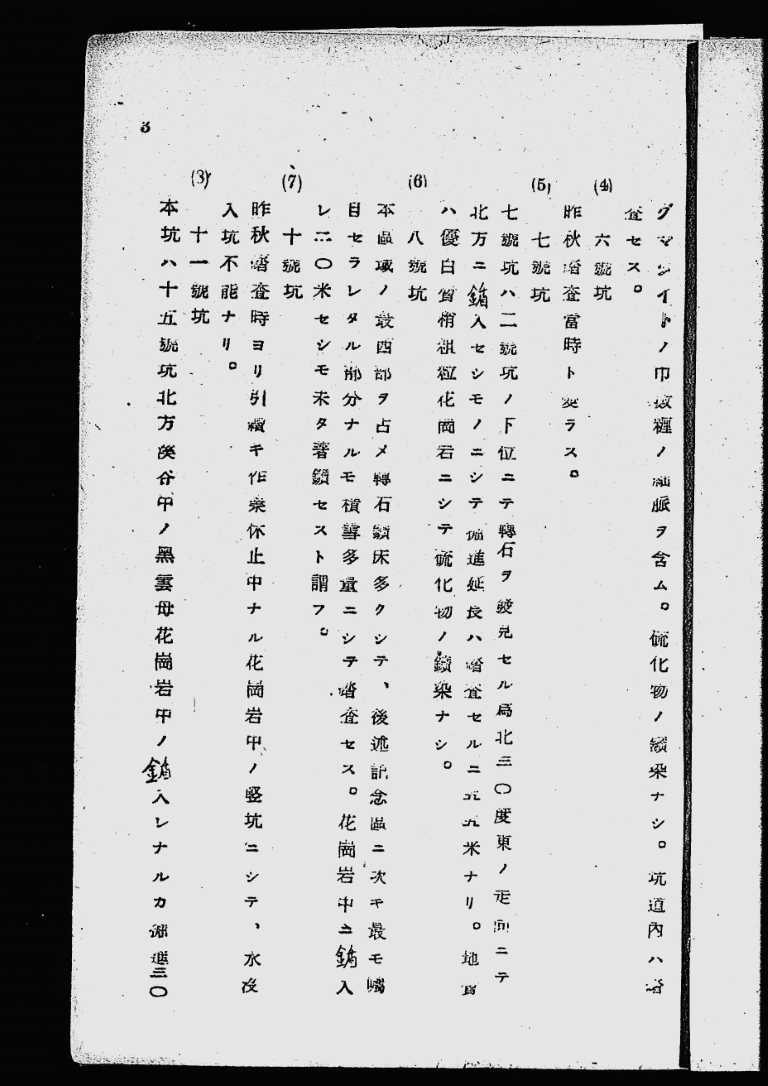 グマタイトノ巾數糎ノ細脈ヲ含ム。硫化物ノ鑛染ナシ。坑道內ハ踏
査セス。
(4) 六號坑
昨秋踏査當時ト變ラス。
(5) 七號坑
七號坑ハ二號坑ノ下位ニテ轉石ヲ發見セル爲北三〇度東ノ走向ニテ
北方ニ𨫤入セシモノニシテ掘進延長ハ踏査セルニ五五米ナリ。地質
ハ優白質稍粗粒花崗岩ニシテ硫化物ノ鑛染ナシ。
(6) 八號坑
本區域ノ最西部ヲ占メ轉石鑛床多クシテ、後述記念區ニ次キ最モ囑
目セラレタル部分ナルモ積雪多量ニシテ踏査セス。花崗岩中ニ𨫤入
レ二〇米セシモ未タ著鑛セスト謂フ。
(7) 十號坑
昨秋踏査時ヨリ引續キ作業休止中ナル花崗岩中ノ竪坑ニシテ、水沒
入坑不能ナリ。
(3) 十一號坑
本坑ハ十五號坑北方溪谷中ノ黑雲母花崗岩中ノ𨫤入レナルカ掘進三〇
3